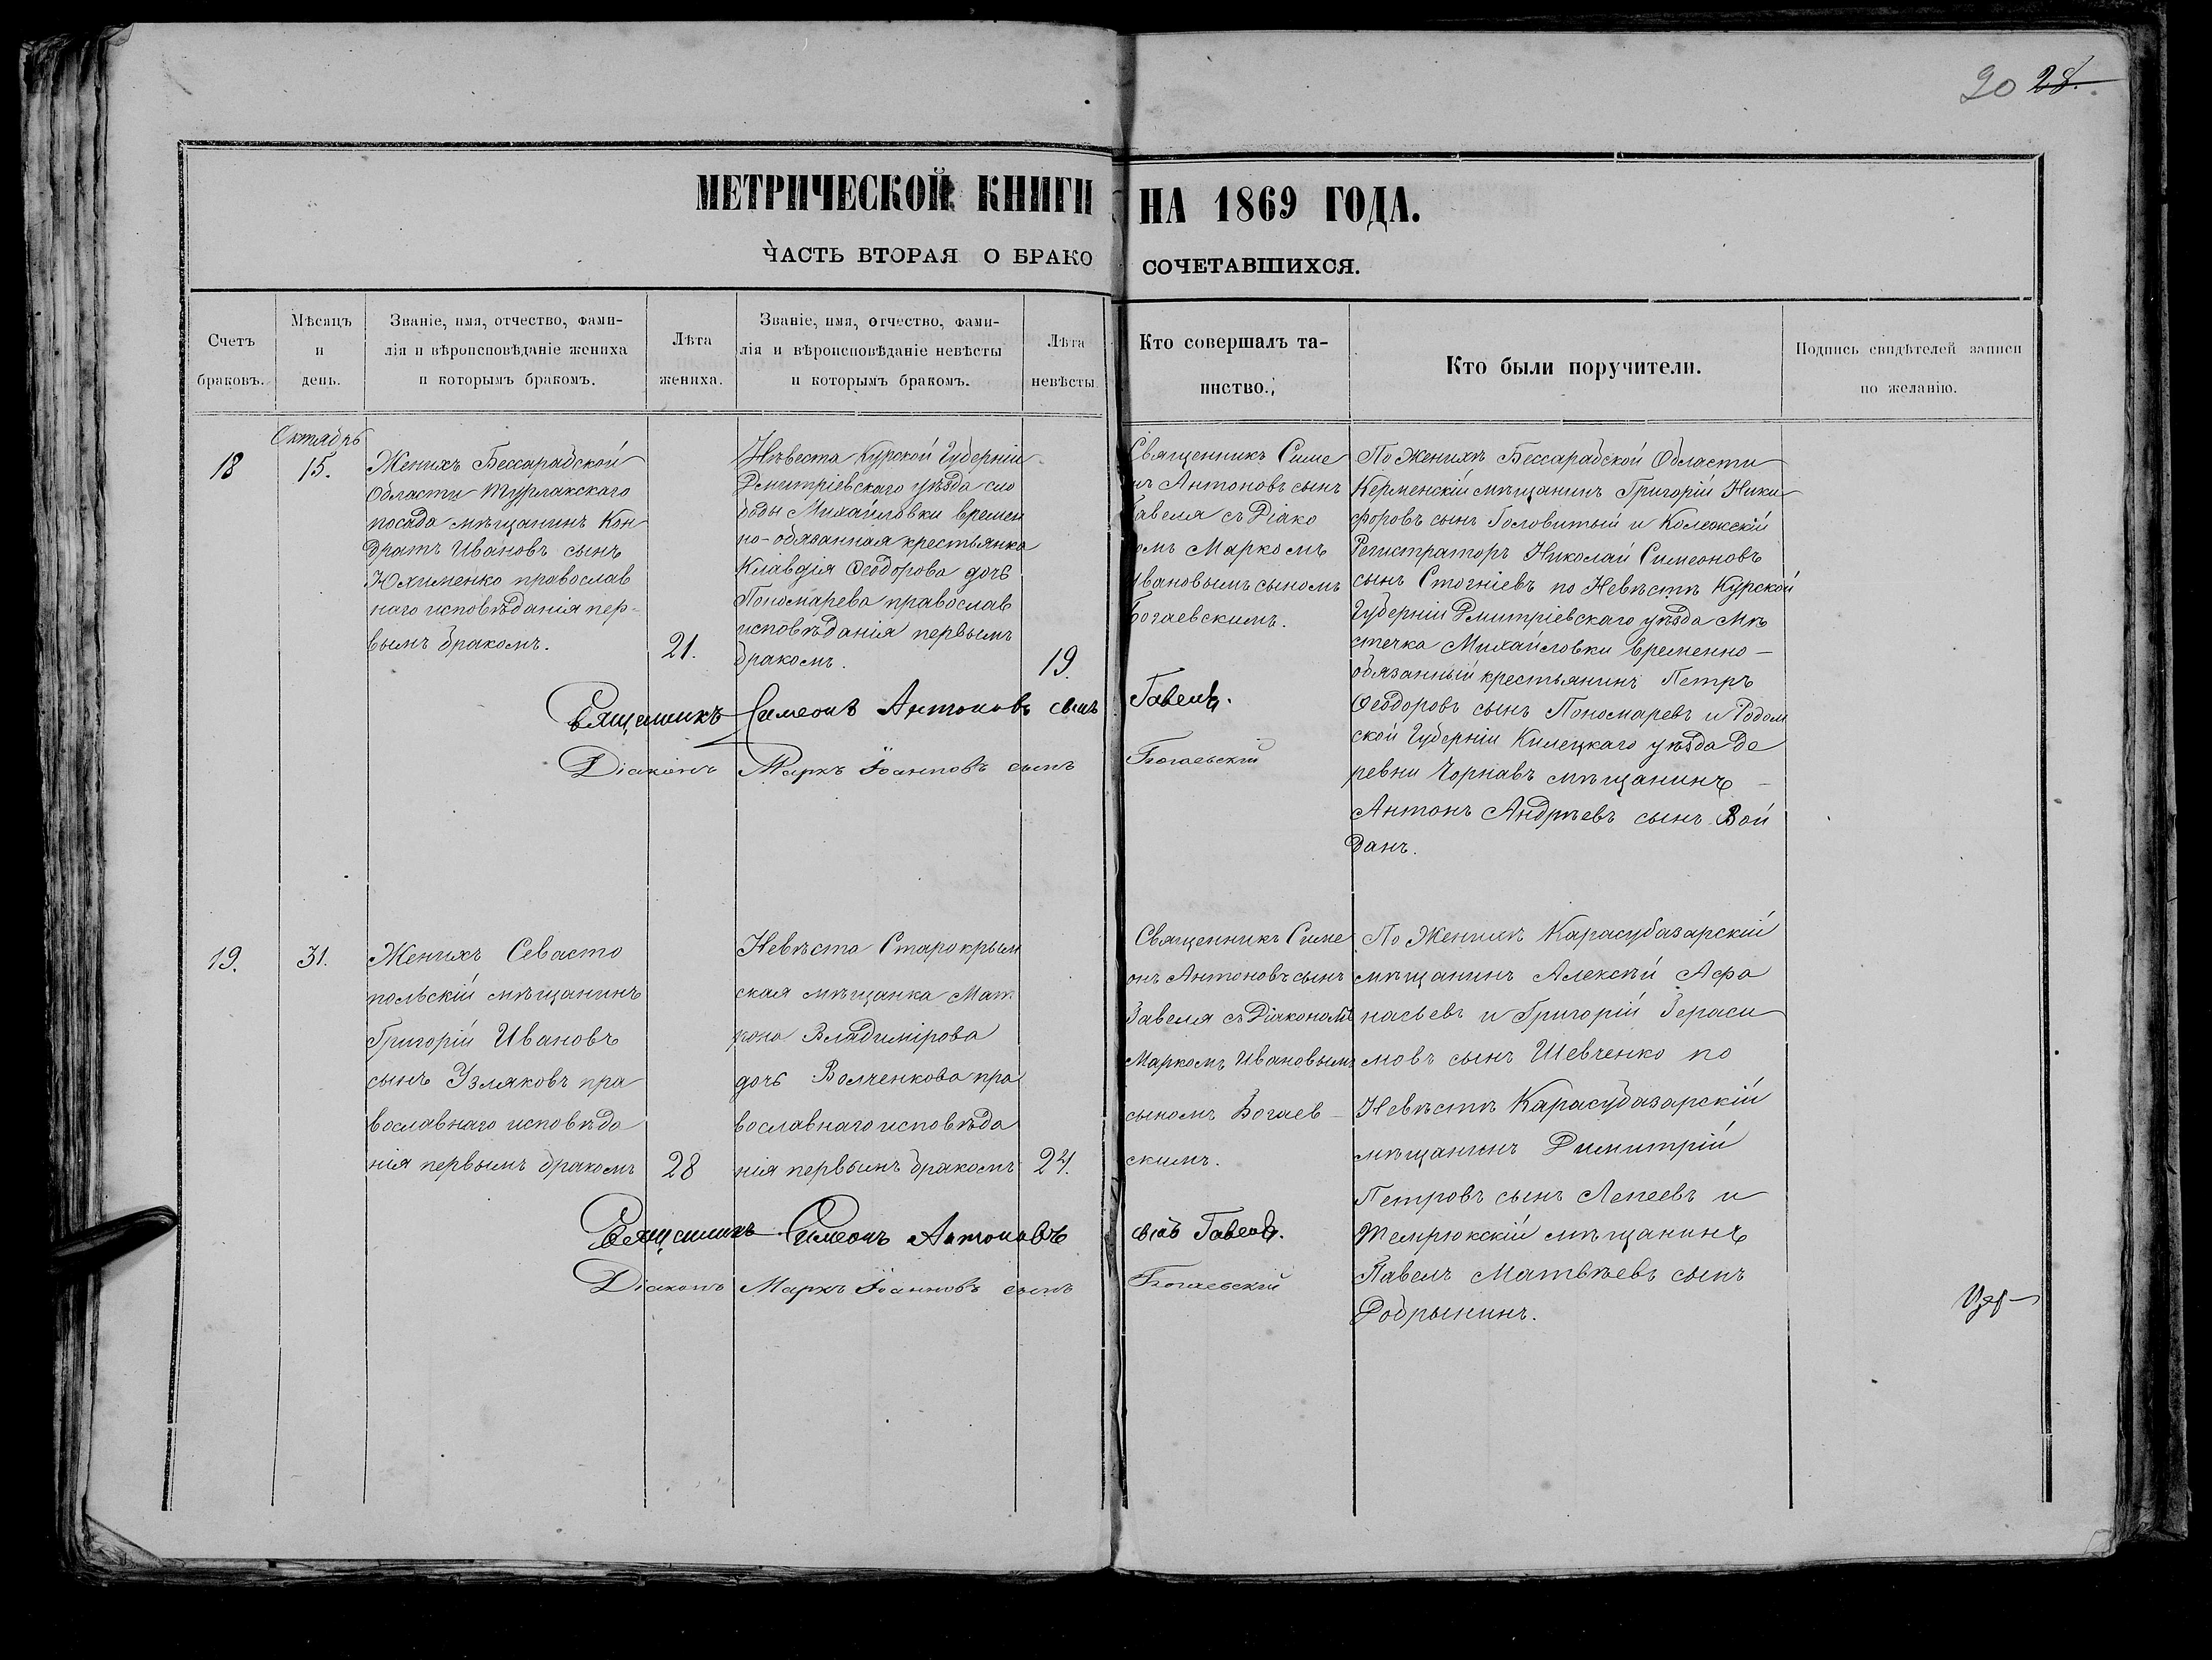 20 28.
МЕТРИЧЕСКОЙ КНИГИ НА 1869 ГОДА.
ЧАСТЬ ВТОРАЯ О БРАКОСОЧЕТАВШИХСЯ.
Счетъ
браковъ.
Мѣсяцъ
и
день.
Званіе, имя, отчество, фами-
лія и вѣроисповѣданіе жениха
и которымъ бракомъ.
Лѣта
жениха.
Званіе, имя, отчество, фами-
лія и вѣроисповѣданіе невѣсты
и которымъ бракомъ.
Лѣта
невѣсты
Кто совершалъ та-
инство.
Кто были поручители.
Подпись свидѣтелей записи
по желанію.
18
Октябрь
15.
Женихъ Бессарабской
Области Турлакскаго
посада мѣщанинъ Кон
дратъ Ивановъ сынъ
Юхименко православ
наго исповѣданія пер-
вымъ бракомъ.
21.
Нѣвеста Курской Губерніи
Дмитріевскаго уѣзда сло
боды Михайловки времен
но-обязанная крестьянка
Клавдія Ѳеодорова дочь
Пономарева православ
исповѣданія первымъ
бракомъ.
19.
Священникъ Симе
нъ Антоновъ сынъ
Гавеля съ Діако
омъ Маркомъ
Ивановымъ сыномъ
Богаевскимъ.
По Женихѣ Бессарабской Области
Керменскій мѣщанинъ Григорій Ники
форовъ сынъ Головитый и Колежскій
Регистраторъ Николай Симеоновъ
сынъ Стогніевъ по Невѣстѣ Курской
Губерніи Дмитріевскаго уѣзда Мѣ
стечка Михайловки временно-
обязанный крестьянинъ Петръ
Ѳеодоровъ сынъ Пономаревъ и Родом
ской Губерніи Килецкаго уѣзда де
ревни Чорнавъ мѣщанинъ
Антонъ Андрѣевъ сынъ Вой
данъ.
Священникъ Симеонъ Антоновъ сынъ Гавель.
Діаконъ Маркъ Іоанновъ сынъ Богаевскій
19.
31.
Женихъ Севасто
польскій мѣщанинъ
Григорій Ивановъ
сынъУзляковъ пра
вославнаго исповѣда
нія первымъ бракомъ
28
Невѣста Старокрым
ская мѣщанка Мат
рона Владимірова
дочь Волченкова пра
вославнаго исповѣда
нія первымъ бракомъ
24.
Священникъ Симе
онъ Антоновъ сынъ
Гавеля съ Діакономъ
Маркомъ Ивановымъ
сыномъ Богаев-
скимъ.
По Женихѣ Карасубазарскій
мѣщанинъ Алексѣй Афа
насьевъ и Григорій Гераси
мовъ сынъ Шевченко по
Невѣстѣ Карасубазарскій
мѣщанинъ Димитрій
Петровъ сынъ Лепеевъ и
Темрюкскій мѣщанинъ
Павелъ Матвѣевъ сынъ
Добрынинъ.
Священникъ Симеонъ Антоновъ сынъ Гавель.
Діаконъ Маркъ Іоанновъ сынъ Богаевскій